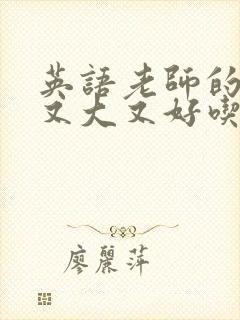 英語老師的
又大又好喫
廖麗萍